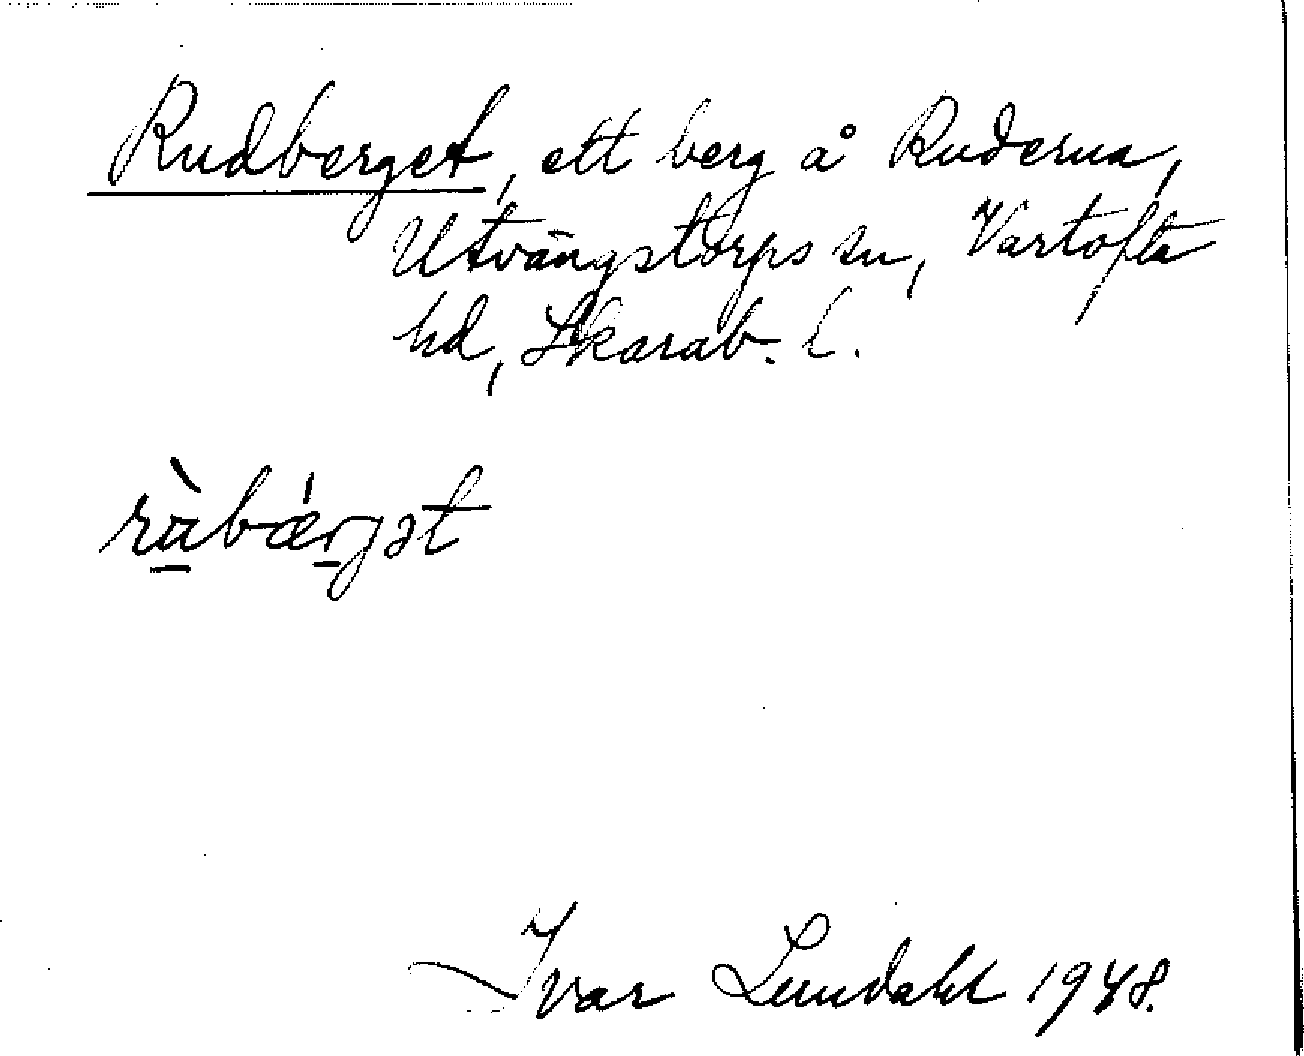 Rudberget, ett berg å Ruderna,
Utvängstorps sn, Vartofta
hd, Skarab. l.
rä̀bǽrgət
Ivar Lundahl 1948.